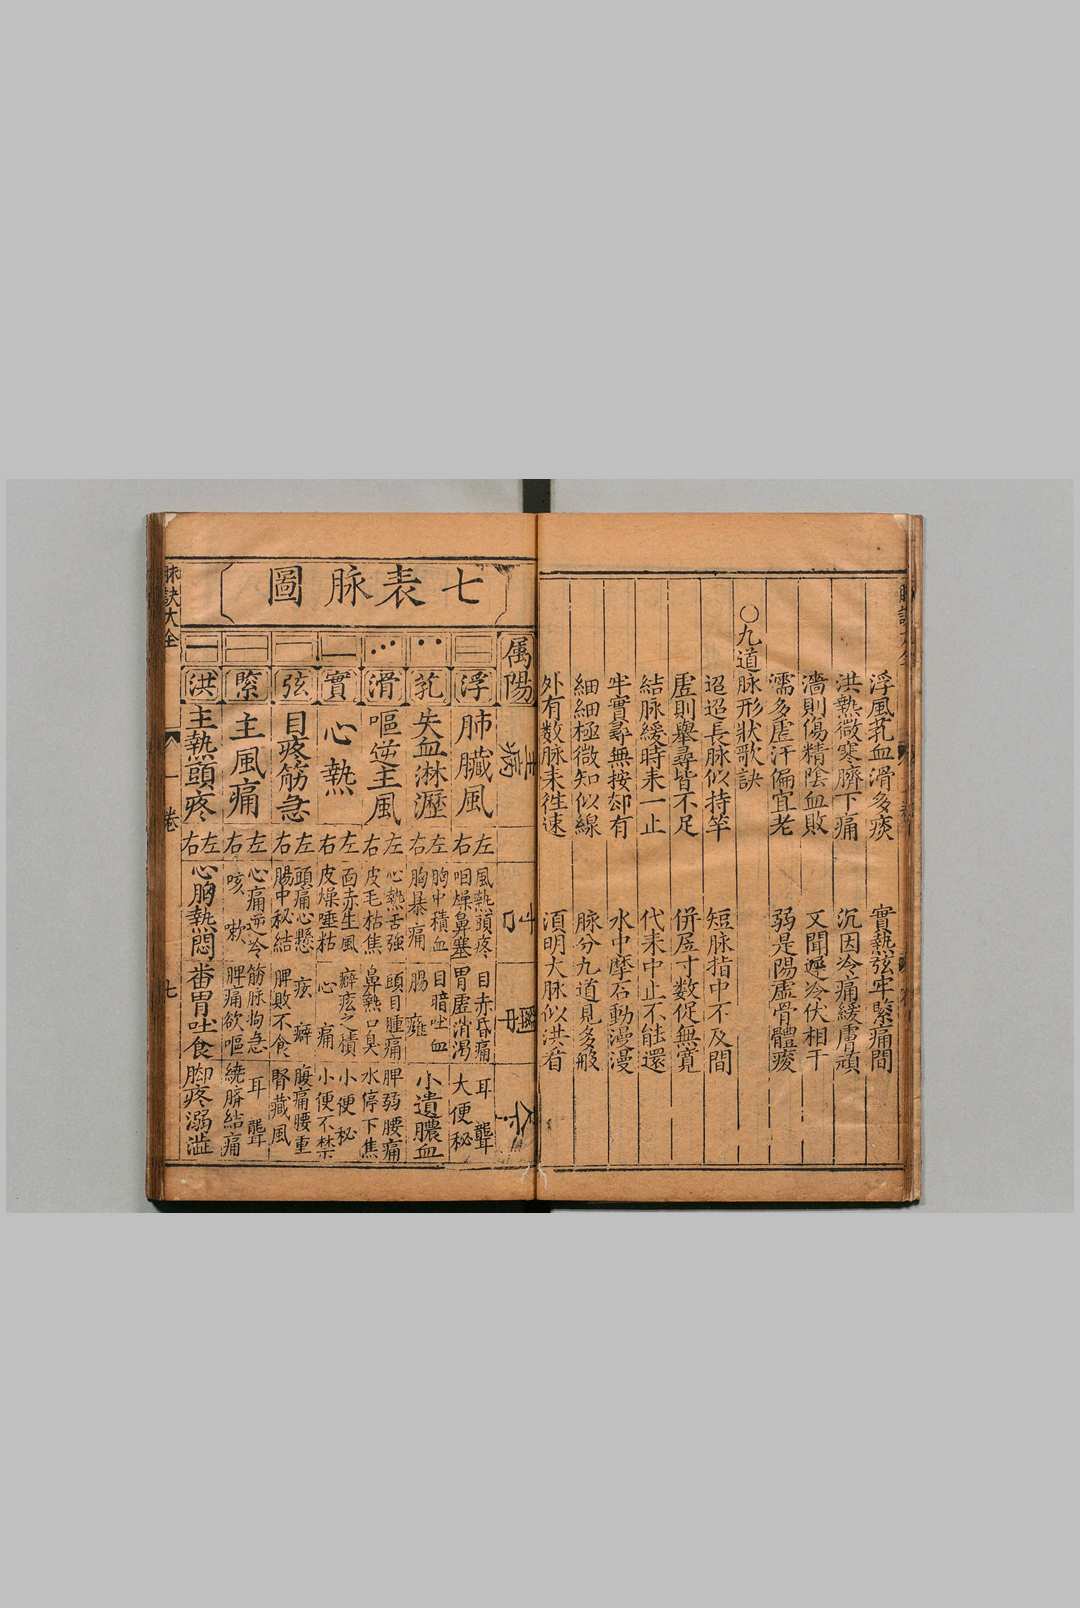 浮風芤血滑多痰　實熱弦牢緊痛間
洪熱微寒臍下痛　沉因冷痛緩膚頑
濇則傷精陰血敗　文聞遲冷伏相干
濡多虛汗偏宜老　弱是陽虛骨體痠
○九道脉形狀歌訣
迢迢長脉似持竿　短脉指中不及間
虛則舉尋皆不足　併居寸數促無寛
結脉緩時来一止　代来中止不能還
牢實尋無按却有　水中摩石動漫漫
細細極微知似線　脉分九道見多般
外有数脉来徃速　須明大脉似洪看
七表脉圖
属陽
主病
寸口
關中
浮
肺臟風
左　右
風熱頭疼　目赤昏痛　耳聾
咽燥鼻塞　胃虛消渴　大便秘
芤
失血淋瀝
左　右
胸中積血　目暗吐血　小遺膿血
胸暴痛　腸癰
滑
嘔逆主風
左　右
心熱舌強　頭目腫痛　脾弱腰痛
皮毛枯焦　鼻熱口臭　水停下焦
實
心熱
左　右
面赤生風　癖痃之積　小便秘
皮燥唾枯　心痛　小便不禁
弦
目疼筋急
左　右
頭痛心懸　痃癖　腹痛腰重
腸中秘結　脾敗不食　腎臟風
緊
主風痛
左　右
心痛逆冷　筋脉拘急　耳聾
咳嗽　脾痛欲嘔　繞臍結痛
洪
主熱頭疼
左　右
心胸熱悶　番胃吐食　脚疼溺澁
脉訣大全
一卷
七